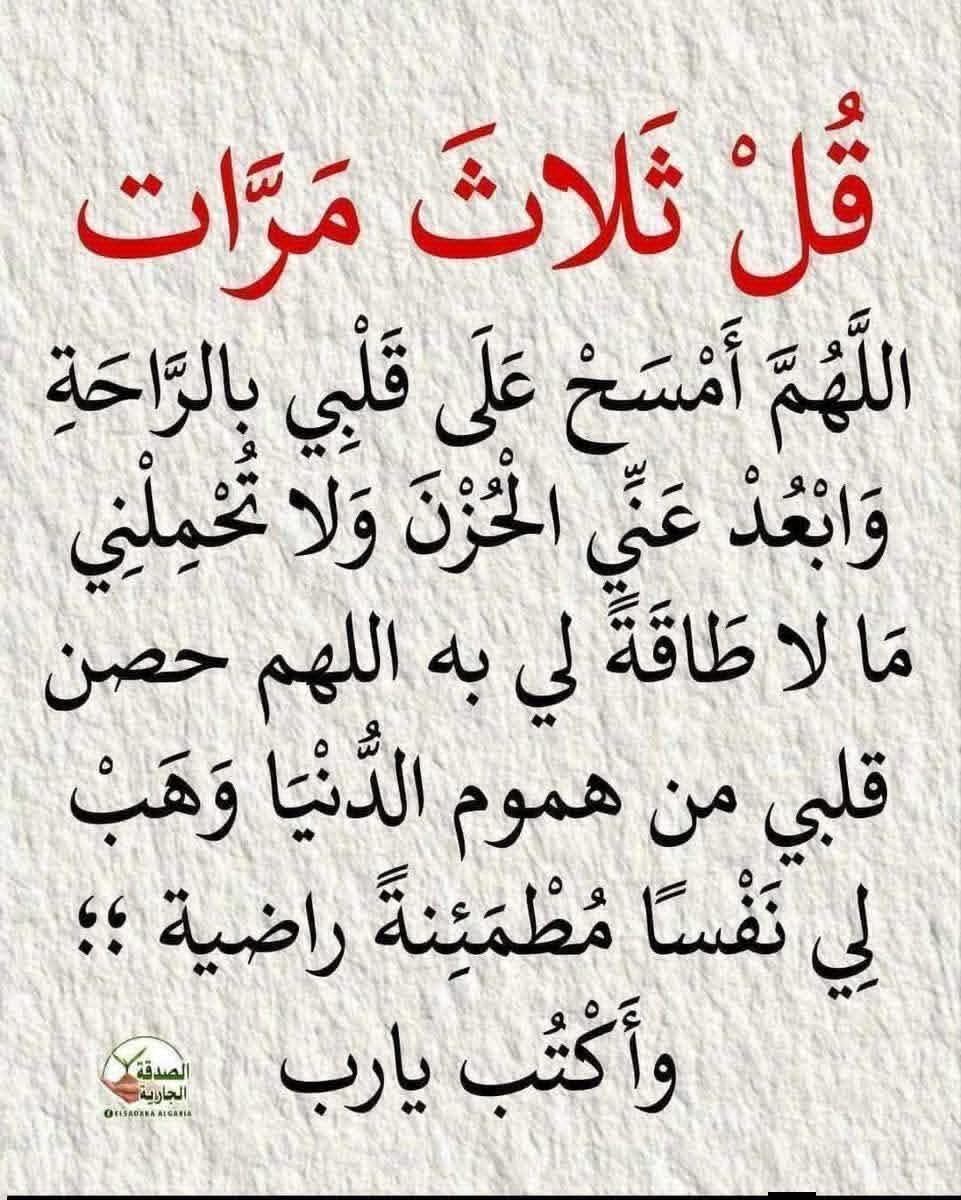 قُلْ ثَلاثَ مَرَّات
اللَّهُمَّ أَمْسَحْ عَلَى قَلْبِي بِالرَّاحَةِ
وَابْعُدْ عَنِّي الْحُزْنَ وَلا تُحْمِلْنِي
مَا لا طَاقَةً لي به اللهم حصن
قلبي من هموم الدُّنْيَا وَهَبْ
لِي نَفْسًا مُطْمَئِنةً راضية ؛؛
وأَكْتُب يارب
الصدقة
الجارية
ELSADAKA ALGARIA